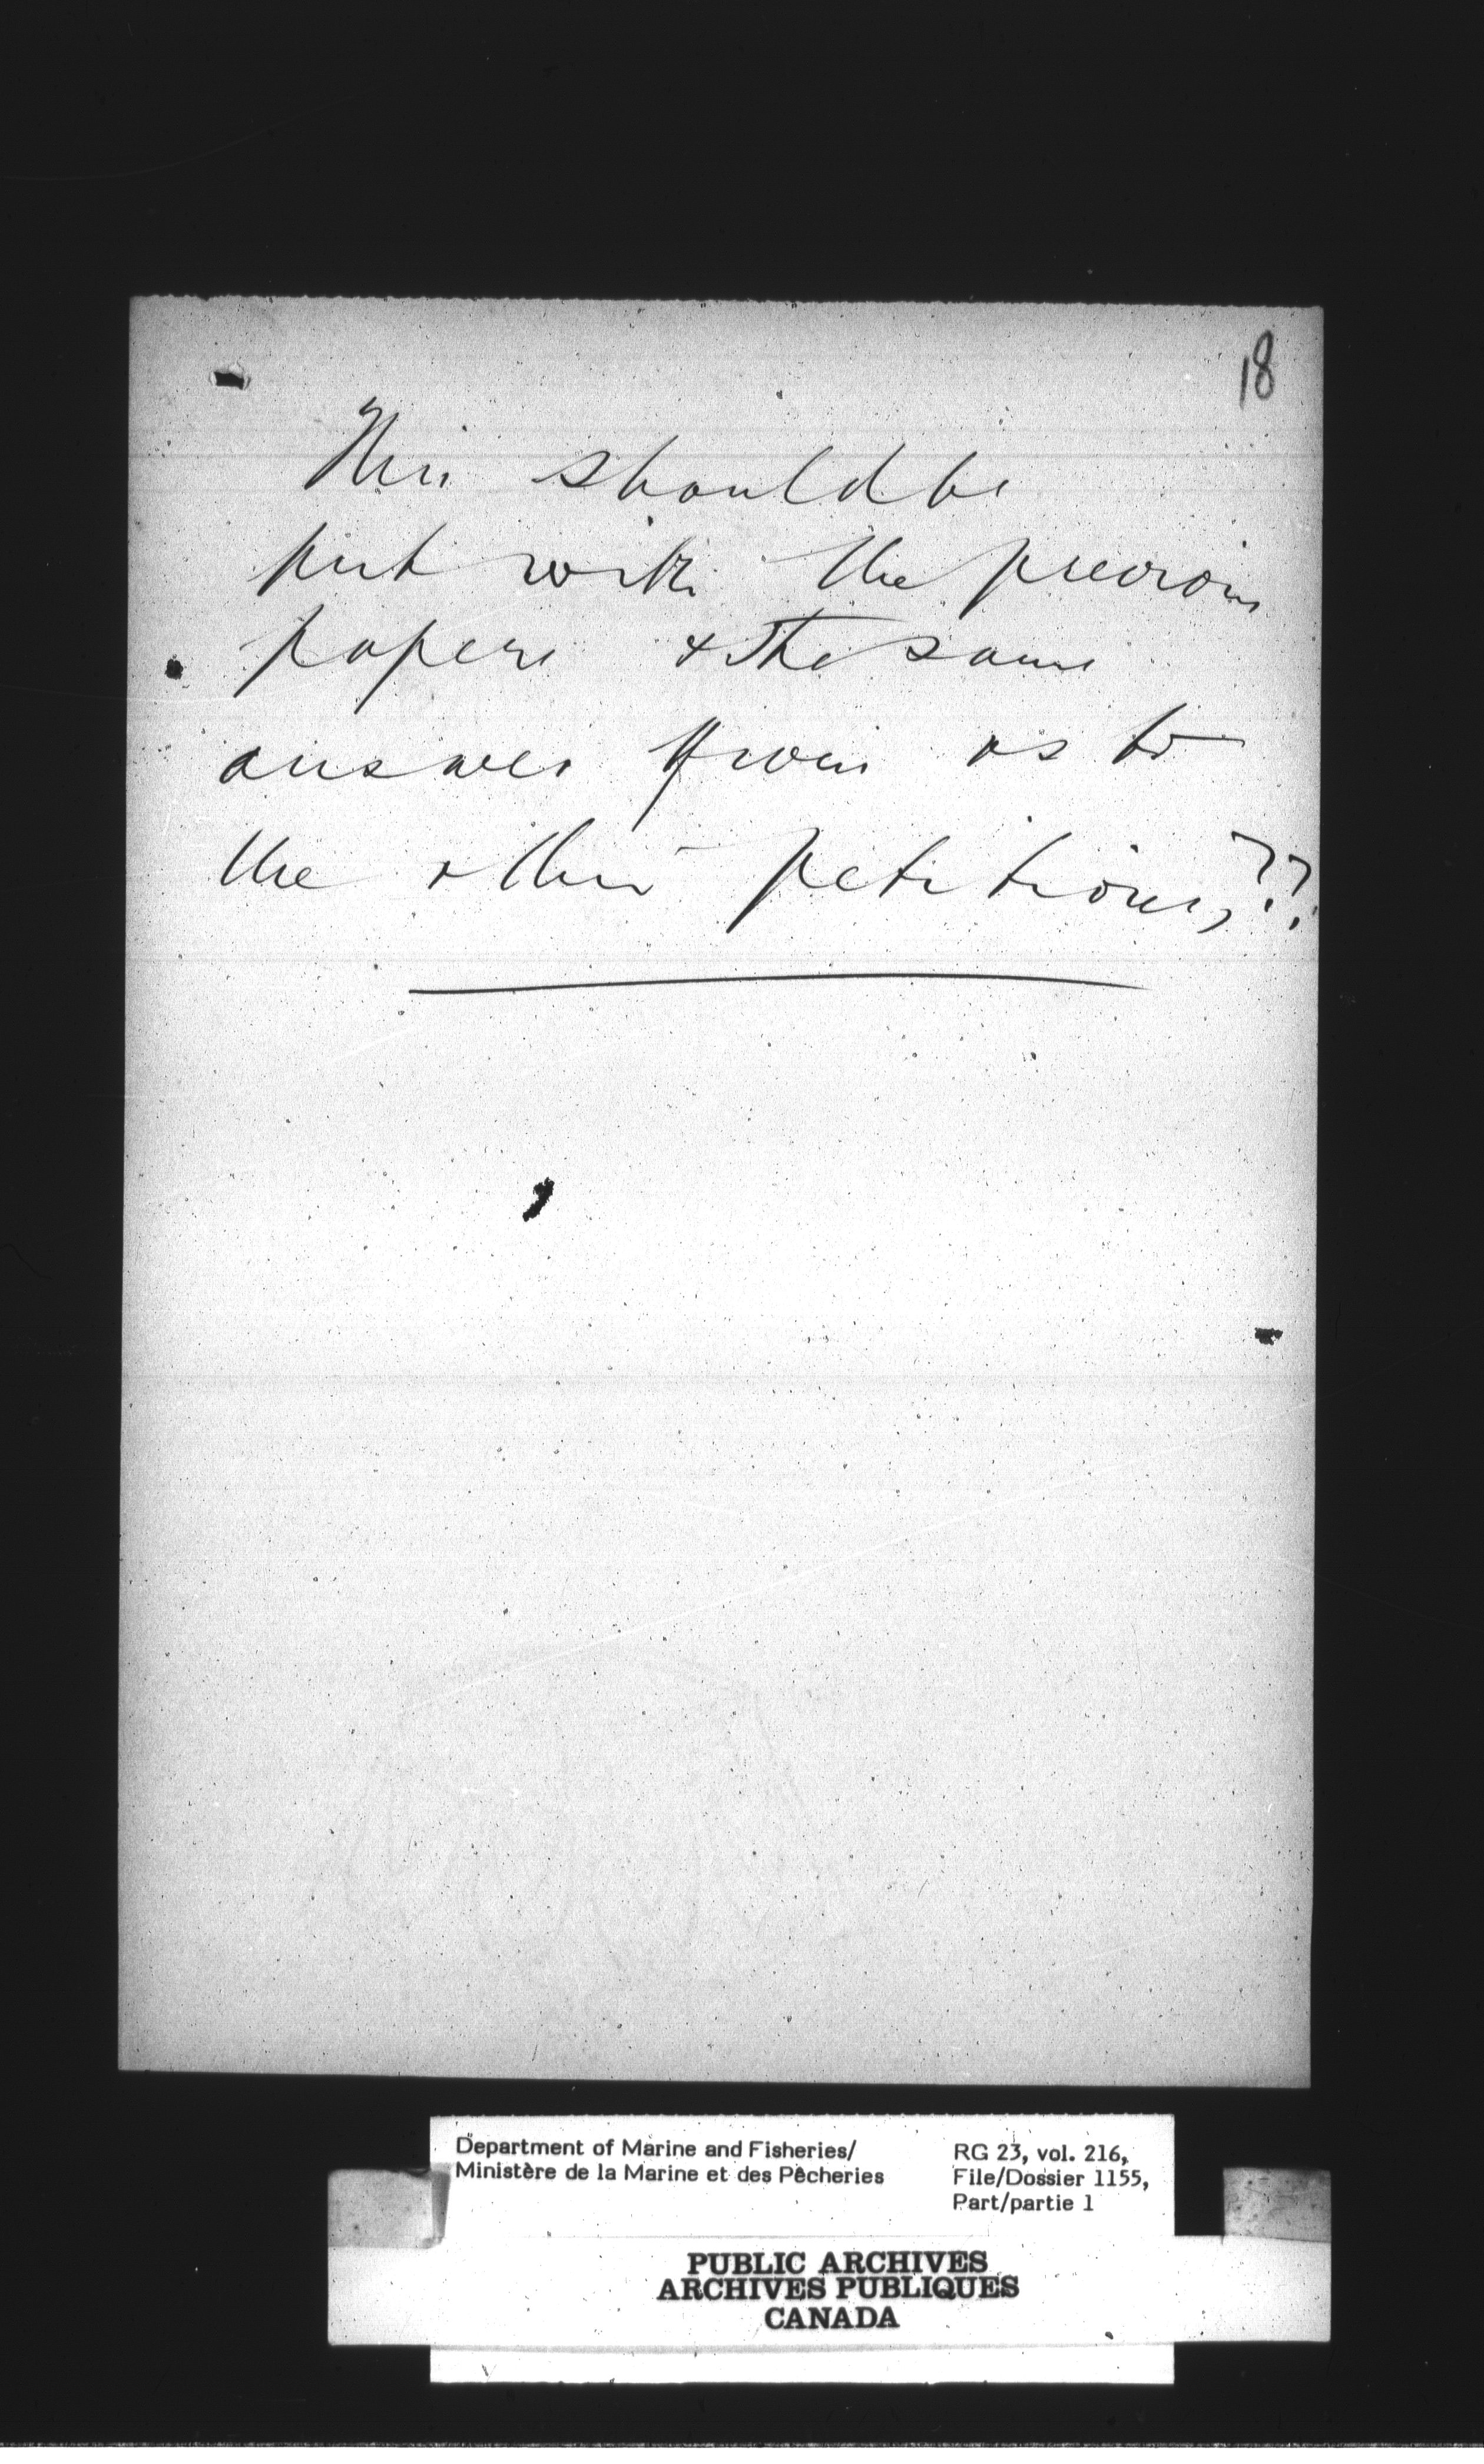 18
This should be
put with the previous
papers & the same
answer given as to
the other petitions,??
Department of Marine and Fisheries/
Ministère de la Marine et des Pêcheries
RG 23, vol. 216,
File/Dossier 1155,
Part/partie 1
PUBLIC ARCHIVES
ARCHIVES PUBLIQUES
CANADA